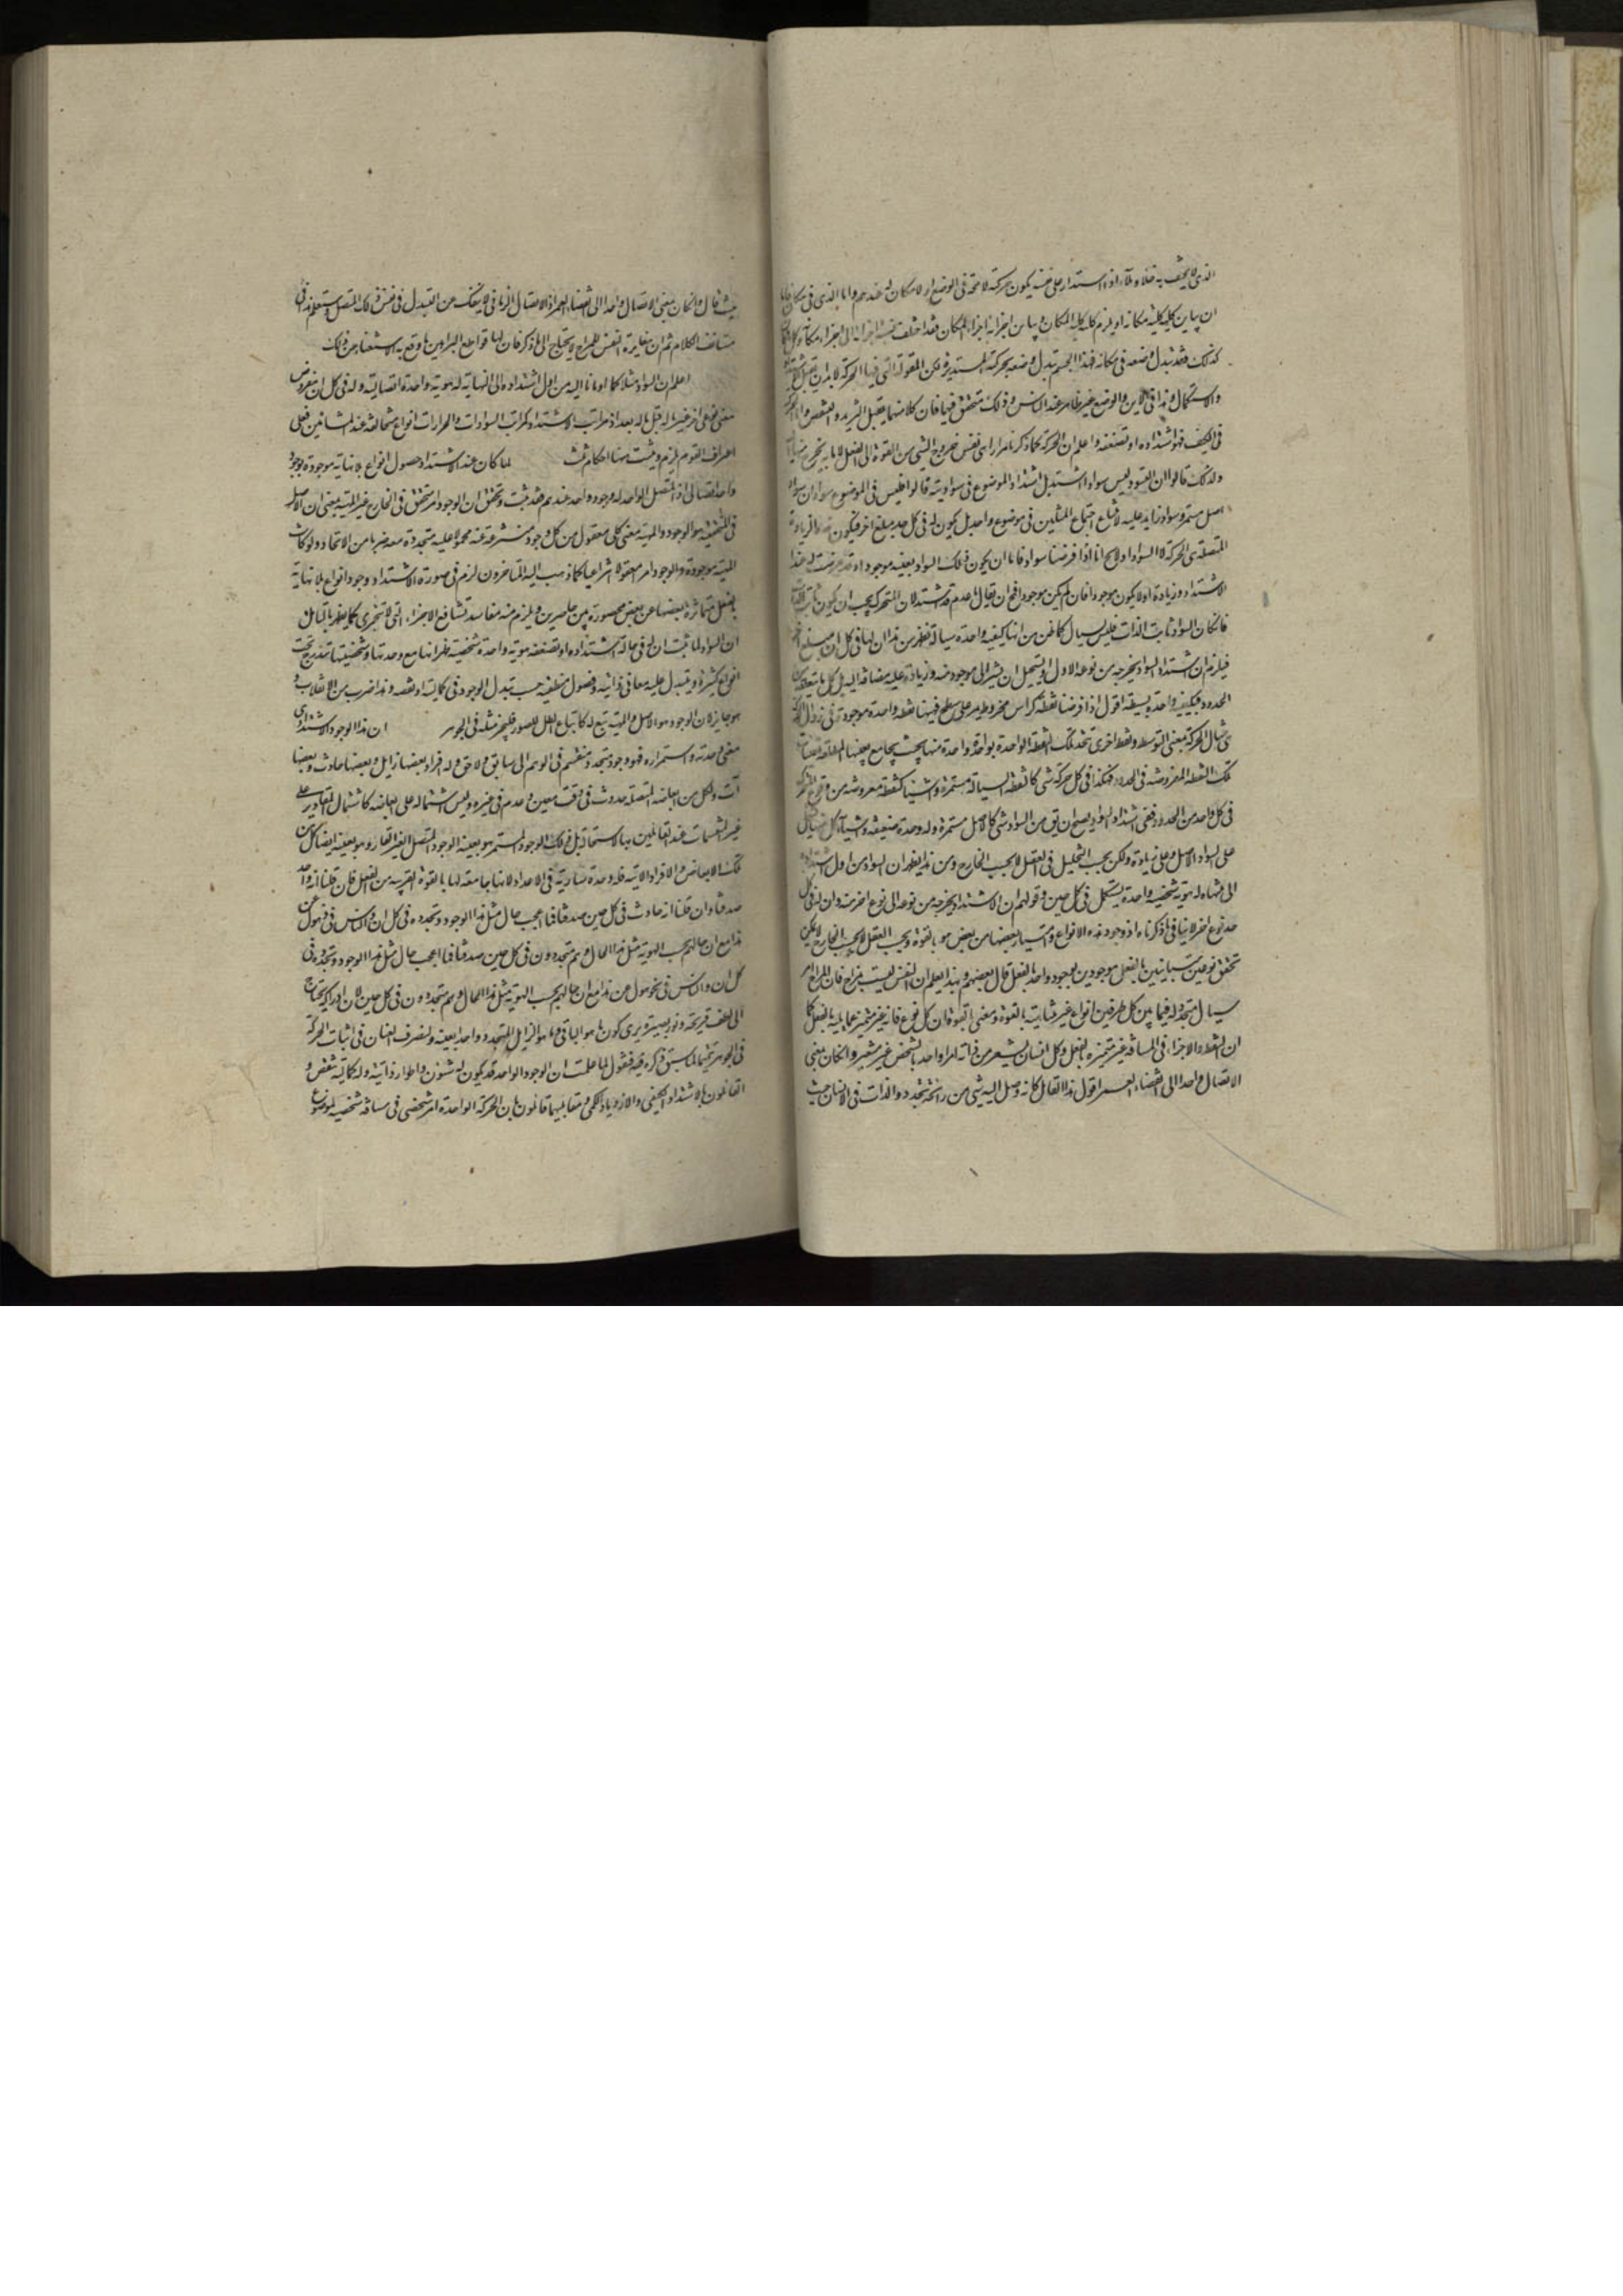 الذی لا یحیف به خلاء و ملاء اذا استدار علی نفسه یکون حرکته لا محة فی الوضع اذ لا مکان له عندهم و اما الذی فی مکان فاما
ان یباین کلیه کلیة مکانه او یلزم کلیه کلیة المکان و یباین اجزائه اجزاء المکان فقد اختلفت نسبة اجزائه الی اجزاء مکانه و کل ما کان
کذلک فقد تبدل وضعه فی مکانه فهذا الجسم تبدل وضعه بحرکته المستدیرة لکن المقولة التی فیها الحرکة لا بد ان تقبل الاشتداد
و الاستکمال و هذا فی الاین و الوضع غیر ظاهر عند الناس و ذلک متحقق فیهما فان کلا منهما یقبل التزید و التنقص و اما الحرکة
فی الکیف فهو اشتداده او تضعفه و اعلم ان الحرکة کما ذکرنا مرارا هی نفس خروج الشی من القوة الی الفعل لا ما به یخرج منها الیه
و لذلک قالوا ان التسود لیس سوادا اشتد بل اشتداد الموضوع فی سوادیته قالوا فلیس فی الموضوع سوادان سواد
اصل مستمر و سواد زاید علیه لامتناع اجتماع المثلین فی موضوع واحد بل یکون له فی کل حد مبلغ اخر فیکون هذه الزیادة
المتصلة هی الحرکة لا السواد او لا یج انا اذا فرضنا سوادا فاما ان یکون ذلک السواد بعینه موجودا و قد عرضت له عند
الاشتداد زیادة او لا یکون موجودا فان لم یکن موجودا فمح ان یقال ما عدم قد اشتد لان المتحرک یجب ان یکون ثابت الذات
فان کان السواد ثابت الذات فلیس بسیال کما ظن من انها کیفیه واحدة سیالة فظهر من هذا ان لها فی کل ان مبلغ اخر
فیلزم ان اشتداد السواد یخرجه من نوعه الاول اذ یستحیل ان یشیر الی موجود منه و زیادة علیه مضافة الیه بل کل ما یبلغه من
الحدود فکیفیة واحدة بسیطة اقول اذا فرضنا نقطة کراس مخروط یمر علی سطح فهیهنا نقطه واحدة موجودة فی زمان الحرکة
هی مثال الحرکة بمعنی التوسط و نقط اخری تتحد تلک النقطة الواحدة بواحدة واحدة منها بحیث یجامع بعینها
تلک النقطة المفروضة فی الحدود فهکذا فی کل حرکة شی کالنقطة السیالة مستمرة و اشیاء کنقطة مفروضة من وقوع المتحرک
فی کل واحد من الحدود ففی اشتداد السواد یصح ان یق من السواد شی کالاصل مستمرة و له وحدة ضعیفة و اشیاء کل منها یشتمل
علی السواد الاصل و علی زیادة ولکن بحسب التحلیل فی العقل لا بحسب الخارج و من هذا یظهر ان السواد من اول اشتداده
الی منتهاه له هویة شخصیة واحدة یستکمل فی کل حین و قولهم ان الاشتداد یخرجه من نوعه الی نوع اخر منه و ان له فی کل
حد نوع اخر لا ینافی ما ذکرناه اذ وجود هذه الانواع و امتیاز بعضها من بعض هو بالقوة و بحسب العقل لا بحسب الخارج اذ لا یمکن
تحقق نوعین متباینین بالفعل موجودین بوجود واحد بالفعل قال بعضهم و بهذا یعلم ان النفس لیست بمزاج فان المزاج امر
سیال متجدد له فیما بین کل طرفین انواع غیر متناهیة بالقوة و معنی بالقوة ان کل نوع فانه غیر متمیز عما یلیه بالفعل کما
ان النقط و الاجزاء فی المسافة غیر متمیزة بالفعل و کل انسان یشعر من ذاته امرا واحدا بالشخص غیر متغیر و ان کان بمعنی
الاتصال واحدا الی انقضاء العمر اقول هذا القائل کانه وصل الیه شی من رائحة تجدد الذات فی الانسان حیث
حیث قال و ان کان بمعنی الاتصال واحدا الی انقضاء العمر اذ الاتصال الزمانی لا ینفک عن التبدل فی نفس ذلک المتصل و ستعلم هذا فی
مستانف الکلام ثم ان مغایرة النفس للمزاج لا یحتاج الی ما ذکر فان لها قواطع البراهین ما وقع به الاستغناء من ذلک
اعلم ان السواد مثلا کما اومانا الیه من اول اشتداده الی النهایة له هویة واحدة اتصالیة و له فی کل ان مفروض
معنی نوعی اخر غیر ما له قبل ما له بعد اذ مراتب الاشتداد کمراتب السوادات و الحرارات انواع متخالفة عند المشائین فعلی
اعتراف القوم یلزم و یثبت منها احکام ثلث لما کان عند الاشتداد حصول انواع بلا نهایة موجودة بوجود
واحد اتصالی اذ المتصل الواحد له وجود واحد عندهم فقد ثبت و تحقق ان الوجود امر متحقق فی الخارج غیر المهیة بمعنی ان الاصل
فی المتحققیة هو الوجود و المهیة معنی کلی معقول من کل وجود منتزعة عنه محمولة علیه متحدة معه ضربا من الاتحاد و لو کانت
المهیة موجودة و الوجود امر معقولا انتزاعیا کما ذهب الیه المتاخرون لزم فی صورة الاشتداد وجود انواع بلا نهایة
بالفعل متمایزة بعضها عن بعض محصورة بین حاصرین و یلزم منه مفاسد تشافع الاجزاء التی لا تتجزی کما یظهر بالتامل
ان السواد لما ثبت ان له فی حالة اشتداده او تضعفه هویة واحدة شخصیة ظهر انها مع وحدتها و شخصیتها تندرج تحت
انواع کثیرة و یتبدل علیه معانی ذاتیة و فصول منطقیة حسب تبدل الوجود فی کمالیته او نقصه و هذا ضرب من الانقلاب و
هو جایز لان الوجود هو الاصل و المهیة تبع له کاتباع الظل للصور فلیجز مثله فی الجوهر ان هذا الوجود الاشتدادی
مع وحدته و استمراره فهو وجود متجدد منقسم فی الوهم الی سابق و لاحق و له افراد بعضها زایل و بعضها حادث و بعضها
آت و لکل من ابعاضه المتصلة حدوث فی وقت معین و عدم فی غیره و لیس اشتماله علی ابعاضه کاشتمال المقادیر علی
غیر المنقسمات عند القائلین بها لاستحالة بل ذلک الوجود المستمر هو بعینه الوجود المتصل الغیر القار و هو بعینه ایضا کل من
تلک الابعاض و الافراد الآنیة فله وحدة ساریة فی الاعداد لانها جامعة لها بالقوة القریبه من الفعل فان قلنا انه واحد
صدقنا و ان قلنا انه حادث فی کل حین صدقنا فما اعجب حال مثل هذا الوجود و تجدده فی کل ان و الناس فی ذهول عن
هذا مع ان حالهم بحسب الهویة مثل هذا الحال و هم متجددون فی کل حین صدقنا فما اعجب حال مثل هذا الوجود و تجدده فی
کل ان و الناس فی ذهول عن هذا مع ان حالهم بحسب الهویة مثل هذا الحال و هم متجددون فی کل حین لان ادراکه یحتاج
الی لطف قریحة و نور بصیرة یری کون ما هو الباقی و ما هو الزایل المتجدد واحدا بعینه و لنصرف العنان فی اثبات الحرکة
فی الجوهر تتمیما لما سبق ذکره فیه فنقول لما علمت ان الوجود الواحد قد یکون له شئون و اطوار ذاتیة و له کمالیة و تنقص و
القائلون بالاشتداد الکیفی و الازدیاد الکمی و مقابلیهما قائلون بان الحرکة الواحدة امر شخصی فی مسافة شخصیة لموضوع